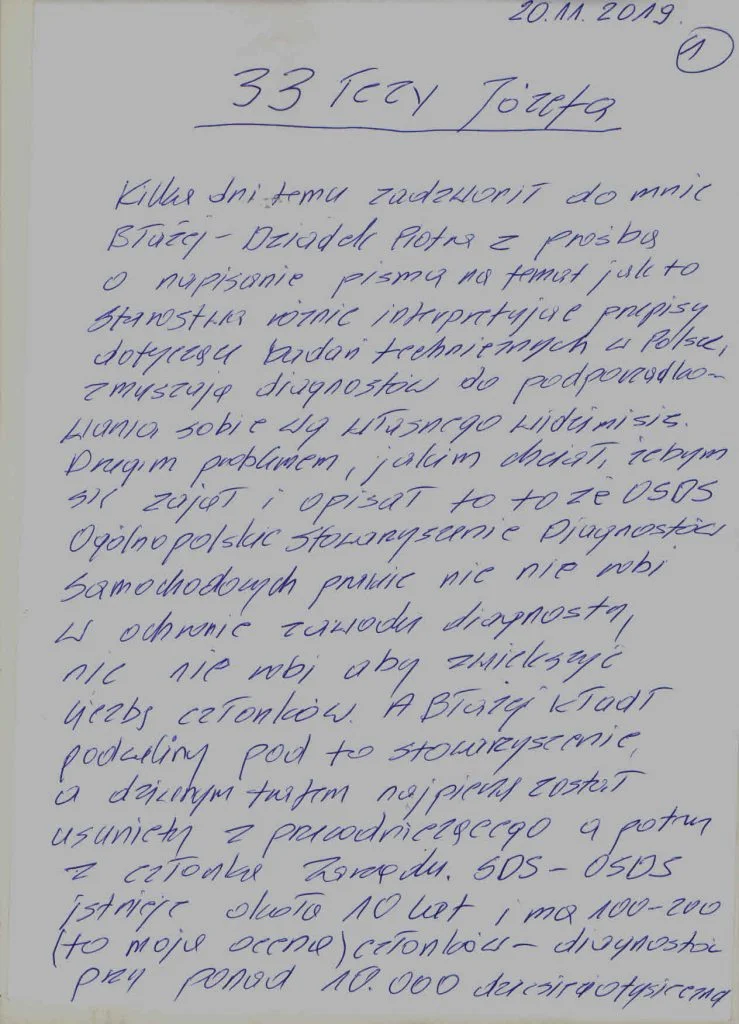 20.11.2019.
1
33 Tezy Józefa
Kilka dni temu zadzwonił do mnie
Błażej – Dziadek Piotra z prośbą
o napisanie pisma na temat jak to
Starostwa różnie interpretując przepisy
dotyczące badań technicznych w Polsce,
zmuszają diagnostów do podporządko-
wania sobie wg własnego widzimisię.
Drugim problemem, jakim chciał, żebym
się zajął i opisał to to że OSDS
Ogólnopolskie Stowarzyszenie Diagnostów
Samochodowych prawie nic nie robi
w ochronie zawodu diagnosty,
nic nie robi aby zwiększyć
liczbę członków. A Błażej kładł
podwaliny pod to stowarzyszenie,
a dziwnym trafem najpierw został
usunięty z przewodniczącego a potem
z członka Zarządu. SDS – OSDS
istnieje około 10 lat i ma 100-200
(to moja ocena) członków – diagnostów
przy ponad 10.000 dziesięciotysięczna